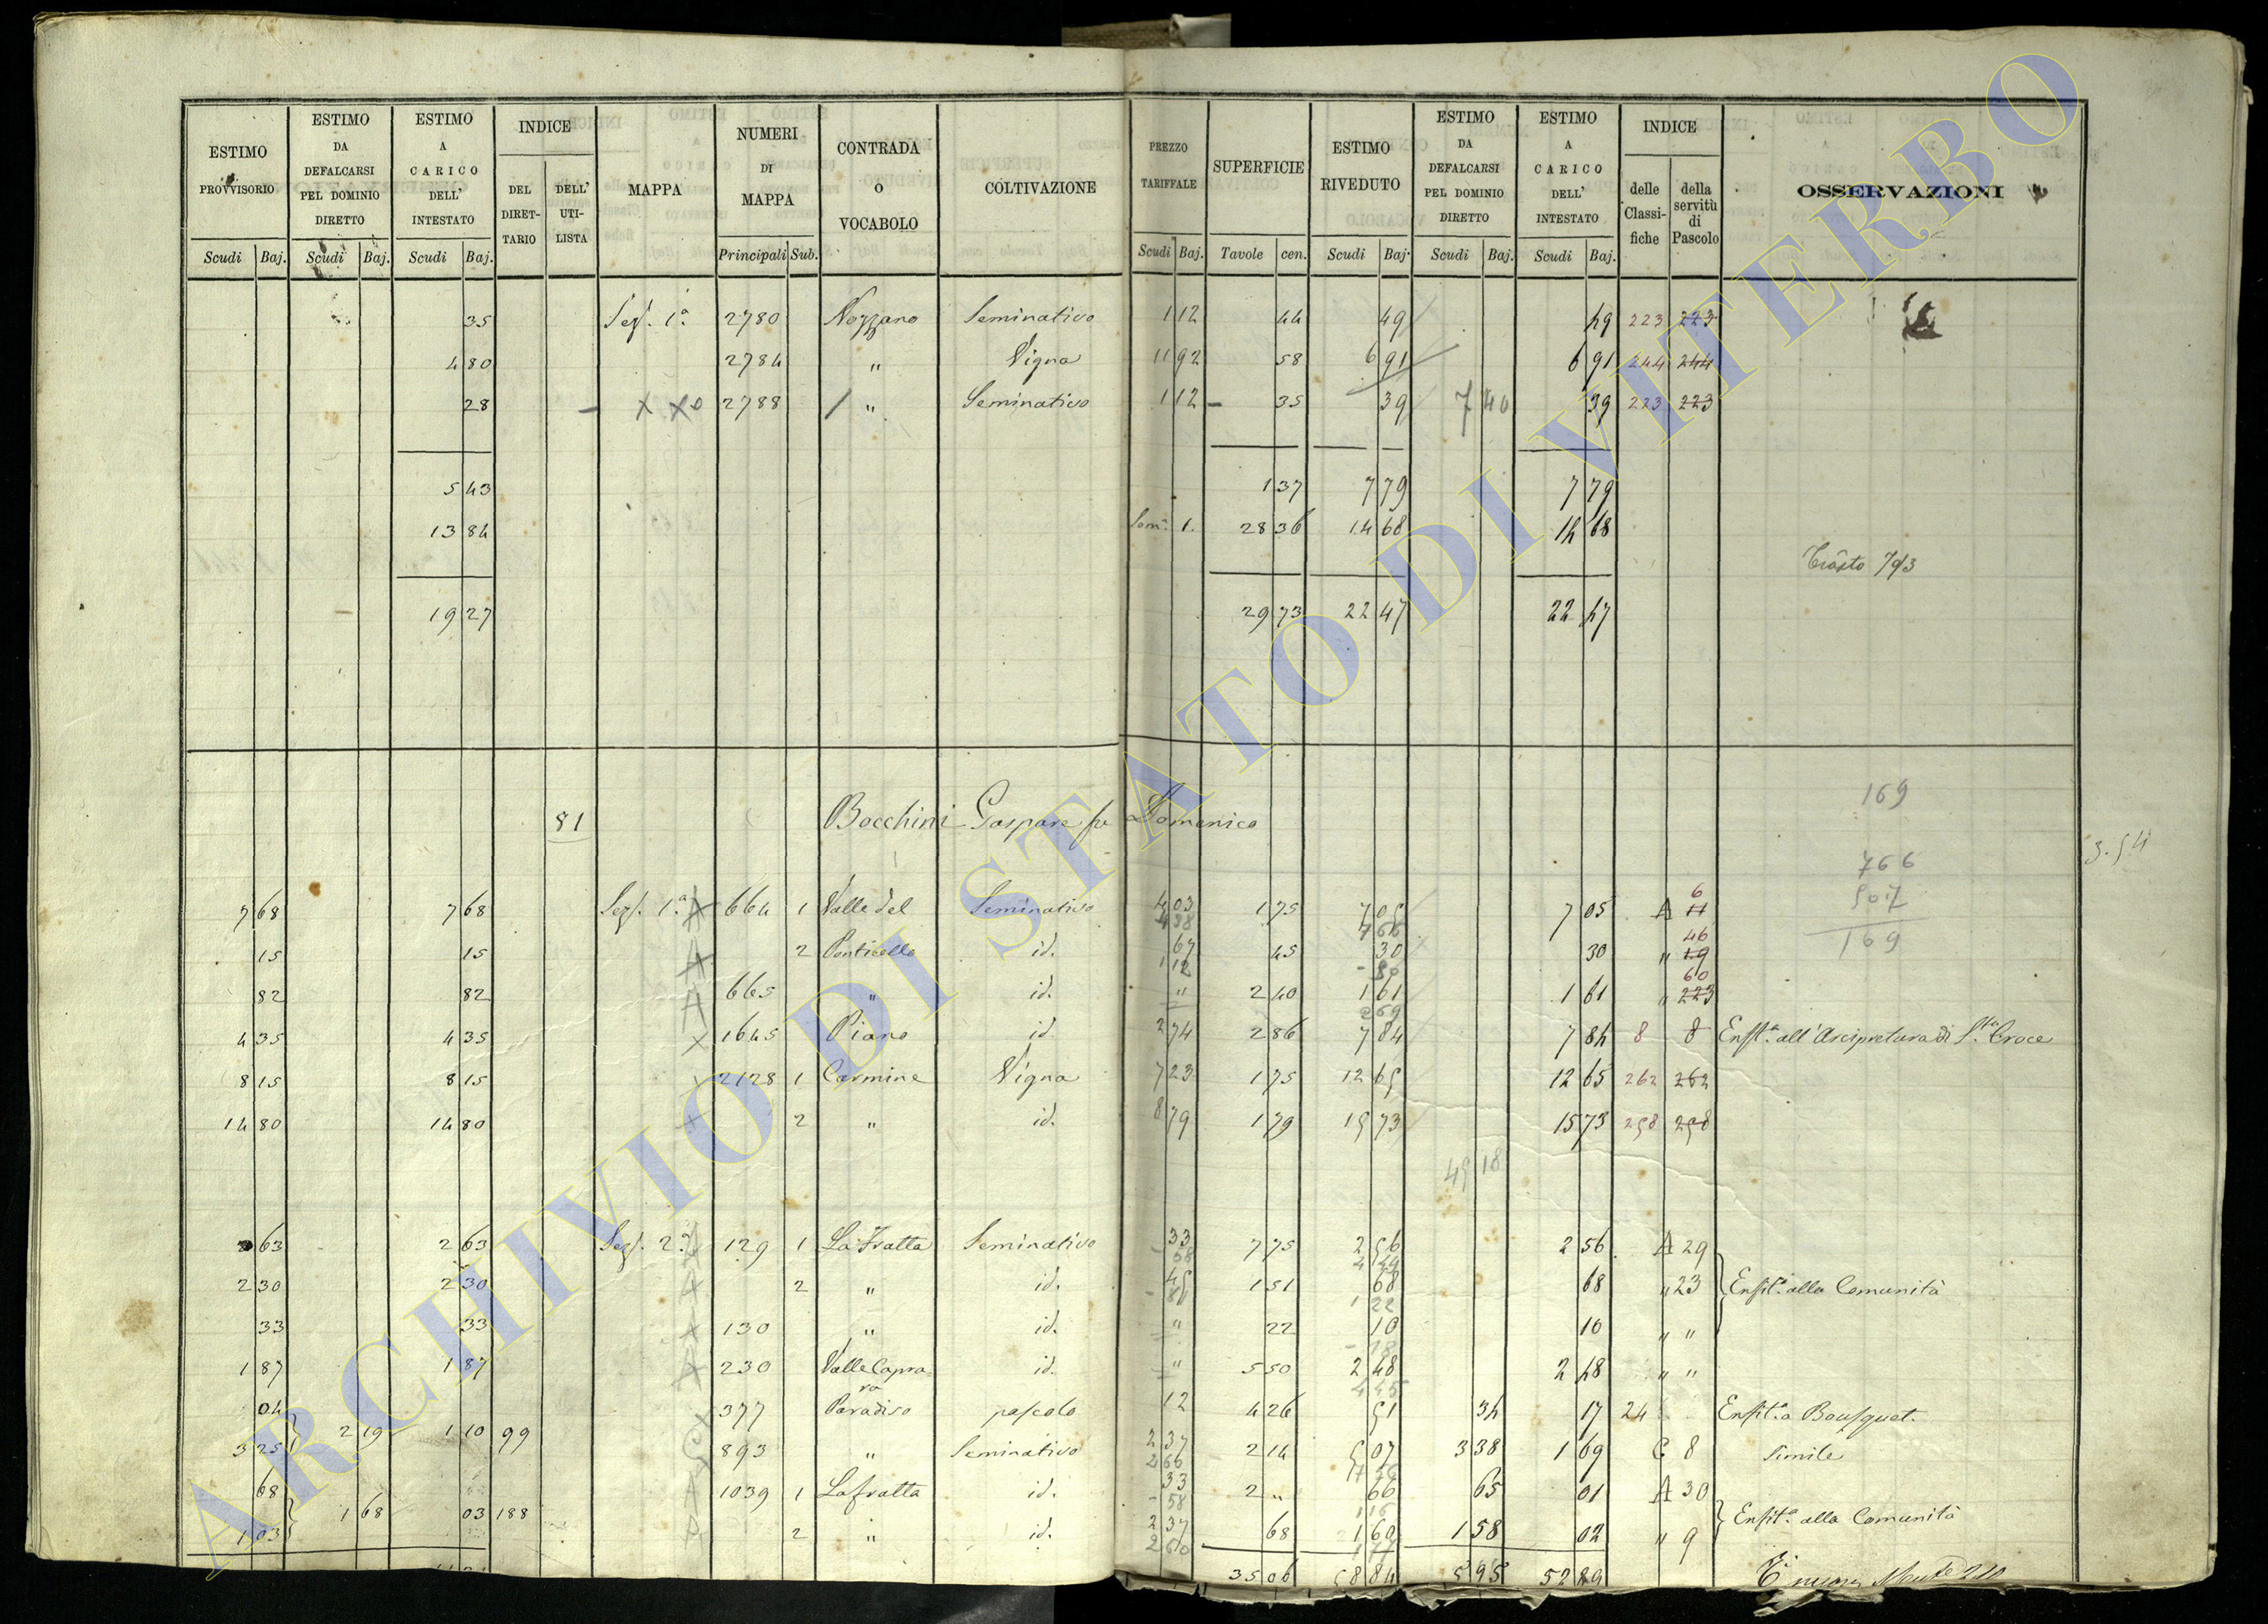 ESTIMO PROVVISORIO | ESTIMO DA DEFALCARSI PEL DOMINIO DIRETTO | ESTIMO A CARICO DELL' INTESTATO | INDICE | MAPPA | NUMERI DI MAPPA | CONTRADA O VOCABOLO | COLTIVAZIONE | PREZZO TARIFFALE | SUPERFICIE | ESTIMO RIVEDUTO | ESTIMO DA DEFALCARSI PEL DOMINIO DIRETTO | ESTIMO A CARICO DELL' INTESTATO | INDICE | OSSERVAZIONI
DEL DIRET-TARIO | DELL' UTI-LISTA | delle Classi-fiche | della servitù di Pascolo
Scudi | Baj. | Scudi | Baj. | Scudi | Baj. | Principali | Sub. | Scudi | Baj. | Tavole | cen. | Scudi | Baj. | Scudi | Baj. | Scudi | Baj.
35 | Sez. 1a | 2780 | Nozzano | Seminativo | 1 12 | 44 | 49 | 49 | 223 | 223
4 80 | 2784 | " | Vigna | 11 92 | 58 | 6 91 | 6 91 | 244 | 244
28 | 2788 | " | Seminativo | 1 12 | 35 | 39 | 7 40 | 39 | 223 | 223
5 43 | 1 37 | 7 79 | 7 79
13 84 | 1. | 28 36 | 14 68 | 14 68
793
19 27 | 29 73 | 22 47 | 22 47
169
81 | Bocchini Gaspare fu Domenico
3.54
766
507
169
7 68 | 7 68 | Sez. 1a | 664 | 1 | Valle del | Seminativo | 4 03 | 4 38 | 1 75 | 7 05 | 7 66 | 7 05 | A | 11 | 6
15 | 15 | 2 | Ponticello | id. | 67 | 1 12 | 45 | 30 | 30 | " | 19 | 46
82 | 82 | 665 | " | id. | " | 2 40 | 1 61 | 2 69 | 1 61 | " | 223 | 60
4 35 | 4 35 | 1645 | Piano | id | 2 74 | 2 86 | 7 84 | 7 84 | 8 | 8 | Enfta all'Arcipretura di Sta Croce
8 15 | 8 15 | 2128 | 1 | Carmine | Vigna | 7 23 | 1 75 | 12 65 | 12 65 | 262 | 262
14 80 | 14 80 | 2 | " | id. | 8 79 | 1 79 | 15 73 | 15 73 | 258 | 258
45 18
2 63 | 2 63 | Sez. 2a | 129 | 1 | La Fratta | Seminativo | 33 | 7 75 | 2 56 | 2 56 | A | 29
2 30 | 2 30 | 2 | " | id. | 45 | 1 51 | 68 | 1 22 | 68 | " | 23 | Enfta alla Comunità
33 | 33 | 130 | " | id. | " | 22 | 10 | 10 | " | "
1 87 | 1 87 | 230 | Valle Capra-ra | id. | " | 5 50 | 2 48 | 2 48 | " | "
04 | 377 | Paradiso | pascolo | 12 | 4 26 | 51 | 34 | 17 | 24 | Enfta a Bousquet.
2 19 | 1 10 | 99
3 25 | 893 | " | Seminativo | 2 37 | 2 66 | 2 14 | 5 07 | 3 38 | 1 69 | C | 8 | Simile
68 | 1039 | 1 | La fratta | id. | 33 | 58 | 2 " | 66 | 65 | 01 | A | 30
1 68 | 03 | 188
1 03 | 2 | " | id. | 2 37 | 2 60 | 68 | 1 60 | 1 58 | 02 | " | 9 | Enfta alla Comunità
35 06 | 58 84 | 5 95 | 52 89
ARCHIVIO DI STATO DI VITERBO